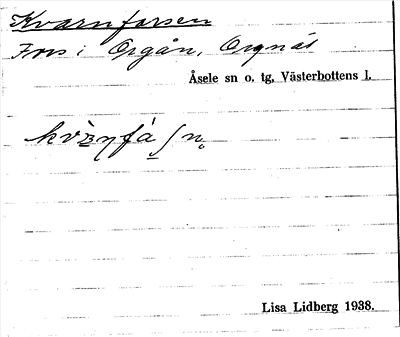 Kvarnforsen
Fors i Orgån, Orgnäs
Åsele sn o. tg. Västerbottens l.
Lisa Lidberg 1938.